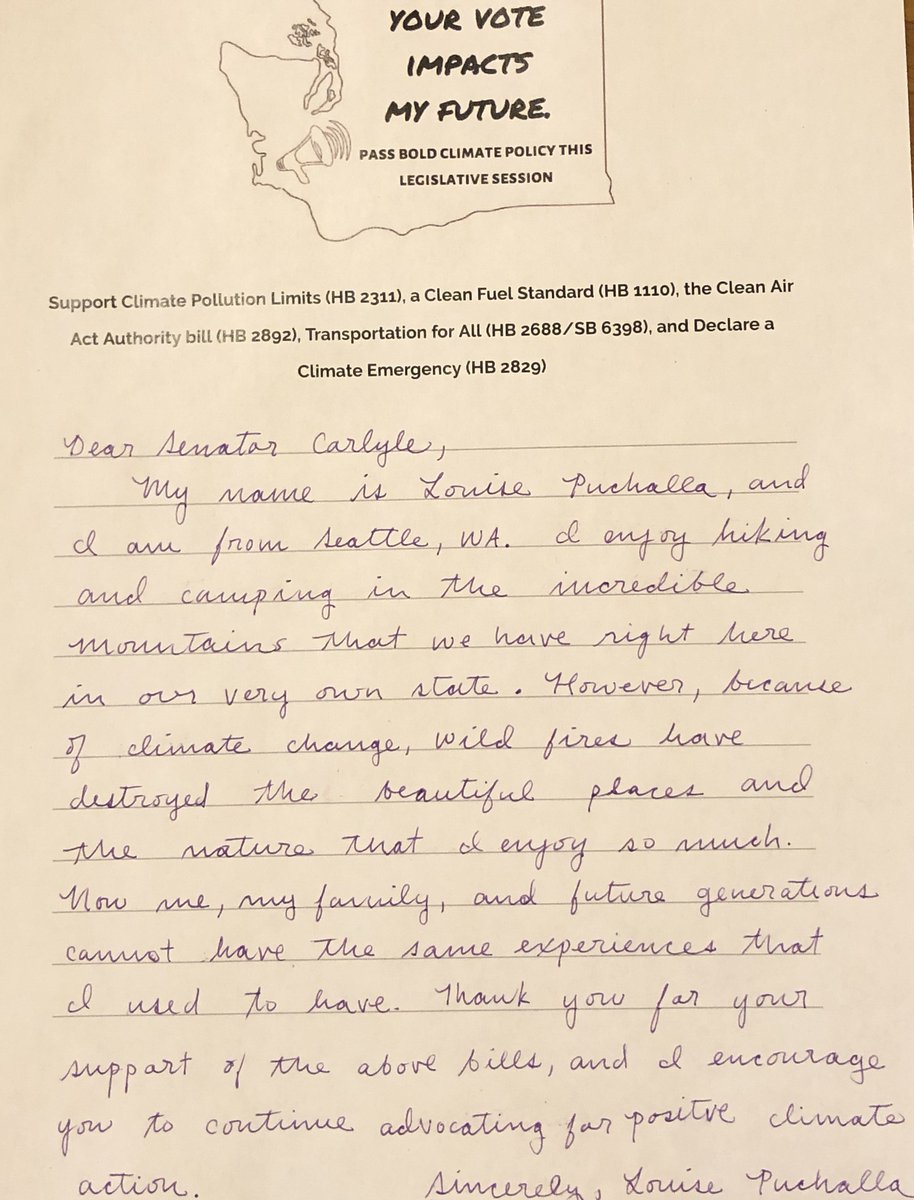 YOUR VOTE
IMPACTS
MY FUTURE.
PASS BOLD CLIMATE POLICY THIS
LEGISLATIVE SESSION
Support Climate Pollution Limits (HB 2311), a Clean Fuel Standard (HB 1110), the Clean Air
Act Authority bill (HB 2892), Transportation for All (HB 2688/SB 6398), and Declare a
Climate Emergency (HB 2829)
Dear Senator Carlyle,
My name is Louise Puchalla, and
I am from Seattle, WA. I enjoy hiking
and camping in the incredible
mountains that we have right here
in our very own state. However, because
of climate change, wild fires have
destroyed the beautiful places and
the nature that I enjoy so much.
Now me, my family, and future generations
cannot have the same experiences that
I used to have. Thank you for your
support of the above bills, and I encourage
you to continue advocating for positve climate
action. Sincerely, Louise Puchalla